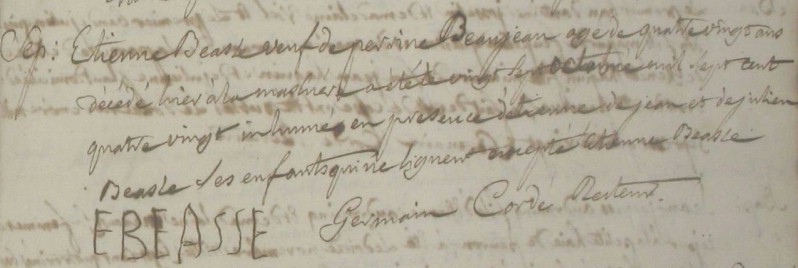 Sep: Etienne Beasse veuf de perrine Beaujean age de quatre vingt ans
décédé hier à la a été le vingt sept octobre mil sept cent
quatre vingt inhumé en presence d'etienne de jean et de julien
Beasse ses enfants qui ne signent excepté Etienne Beasse
EBEASSE Germain Cordé Recteur.